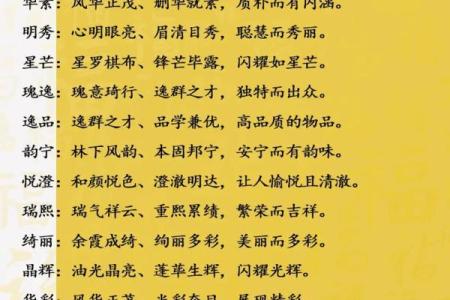 华素：风华正茂、删华就素，质朴而有内涵。
明秀：心明眼亮、眉清目秀，聪慧而秀丽。
星芒：星罗棋布、锋芒毕露，闪耀如星芒。
瑰逸：瑰意琦行、逸群之才，独特而出众。
逸品：逸群之才、品学兼优，高品质的物品。
韵宁：林下风韵、本固邦宁，安宁而有韵味。
悦澄：和颜悦色、澄澈明达，让人愉悦且清澈。
瑞熙：瑞气祥云、重熙累绩，繁荣而吉祥。
绮丽：余霞成绮、绚丽多彩，美丽而多彩。
晶辉：油光晶亮、蓬荜生辉，闪耀光辉。
华彩：风华正茂、光彩夺目，展现精彩。